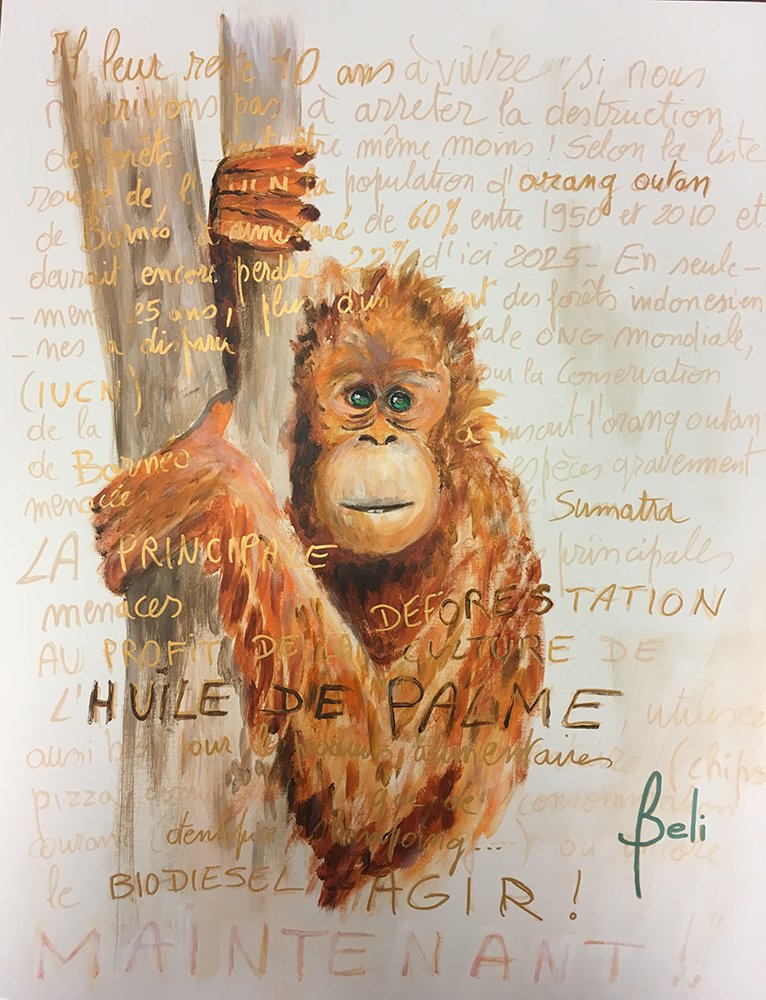 Il leur reste 10 ans à vivre si nous
n'arrivons pas à arreter la destruction
des forêts peut être même moins ! Selon la liste
rouge de l'IUCN la population d'orang outan
de Bornéo a diminué de 60% entre 1950 et 2010 et
devrait encore perdre 22% d'ici 2025 - En seule-
- ment 25 ans, plus d'un quart des forêts indonesien
- nes a disparu ale ONG mondiale,
(IUCN) pour la Conservation
de la a inscrit l'orang outan
de Borneo espèces gravement
menacées Sumatra
LA PRINCIPALE principales
menaces DEFORESTATION
AU PROFIT DE LA CULTURE DE
L'HUILE DE PALME, utilisée
aussi bien pour les produits alimentaires (chips
pizza consommation
courante (dentifrice, shampoing...) ou encore
le BIODIESEL AGIR !
MAINTENANT !!
Beli